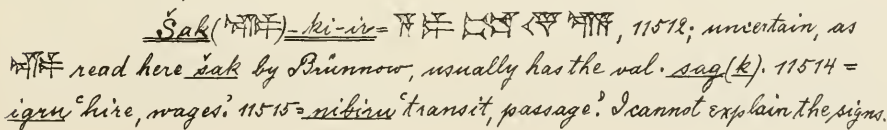 Šak(𒊕)-ki-ir = , 11512; uncertain, as
read here šak by Brünnow, usually has the val. sag(k). 11514 =
igru ‘hire, wages’. 11515 = nibiru ‘transit, passage’. I cannot explain the signs.